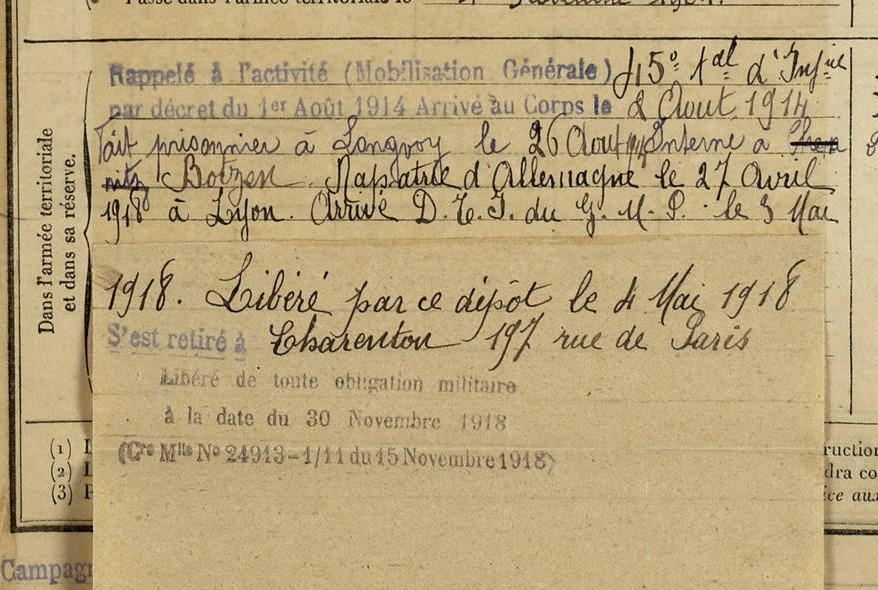 Passé dans l'armée territoriale le
Dans l'armée territoriale
et dans sa réserve.
Rappelé à l'activité (Mobilisation Générale) 45e tal d'Infie
par décret du 1er Août 1914 Arrivé au Corps le 2 Aout 1914
Fait prisonnier à Longwy le 26 Aout 1914 Interné à
Botzen. Rapatrié d'Allemagne le 27 Avril
1918 à Lyon. Arrivé D. T. I. du G. M. P. le 3 Mai
1918. Libéré par ce dépôt le 4 Mai 1918
S'est retiré à Charenton 197 rue de Paris
Libéré de toute obligation militaire
à la date du 30 Novembre 1918
(Cre Mlle No 24913-1/11 du 15 Novembre 1918)
(1) L
(2) L
(3) P
ruction
dra co
ice aux
Campag